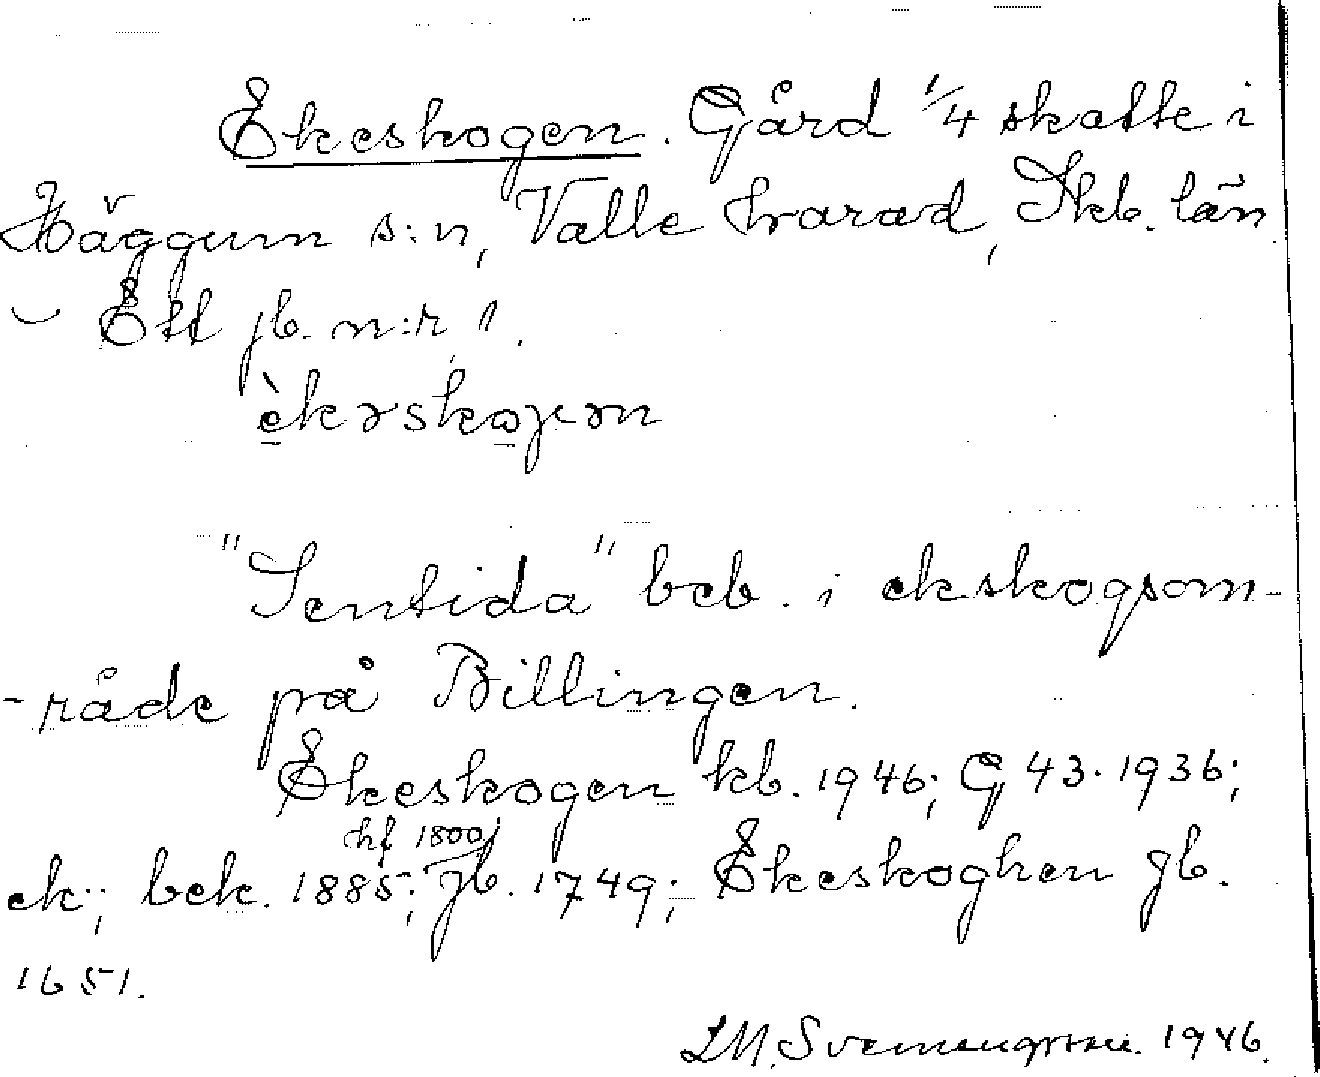 Ekeskogen. Gård 1/4 skatte i
Häggum s:n, Valle härad, Skb. län
– Ett jb. n:r 1.
èkəskoɡən
"Sentida" beb. i ekskogsom-
-råde på Billingen.
Ekeskogen kb. 1946; G 43. 1936;
hf 1800
ek.; bek. 1885; jb. 1749; Ekeskoghen jb.
1651.
1946.